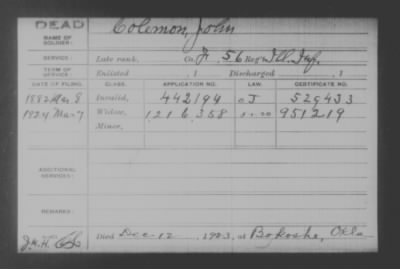 DEAD
NAME OF SOLDIER: Colemon, John
SERVICE: Late rank, Co. F, 56 Reg't Ill. Inf.
TERM OF SERVICE: Enlisted , 1 Discharged , 1
DATE OF FILING. CLASS. APPLICATION NO. LAW. CERTIFICATE NO.
1882 Mar 8 Invalid, 442194 529433
1924 Mar 7 Widow, 1216,358 951219
Minor,
ADDITIONAL SERVICES:
REMARKS:
Died Dec 12, 1923, at Bokoshe, Okla